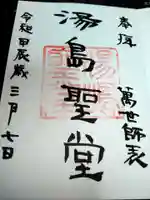 奉拝
萬世師表
湯島聖堂
令和甲辰歳
三月七日